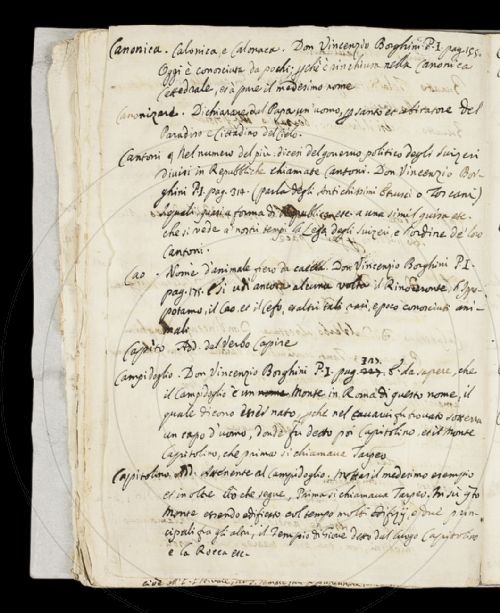 Canonica. Calonica, e Calonaca. Don Vincenzio Borghini P. I. pag. 155.
Oggi è conosciuta da pochi; pchè è rinchiusa nella Canonica
Cattedrale, era pure il medesimo nome
Canonizare. Dichiarare dal Papa un'uomo, p santo et abitatore del
Paradiso e Cittadino del Cielo.
Cantoni Nel numero del più. dicesi del governo politico degli Suizeri
divisi in Repubbliche chiamate Cantoni. Don Vincenzio Bor-
ghini P. I. pag. 314. (parla degli Antichissimi Etrusci o Toscani)
a quali questa forma di Repubblica etc. a una simil guisa etc.
che si vede a' nostri tempi la Lega degli Suizeri e l'ordine de' loro
Cantoni.
Cao. Nome d'animale fiero da caccia. Don Vincenzio Borghini P. I.
pag. 175. Si udì ancora alcuna volta il Rinoceronte, l'Ippo-
potamo, il Cao, et il Cefo, et altri tali rari, e poco conosciuti ani-
mali
Capito. Add. dal Verbo Capire
Campidoglio. Don Vincenzio Borghini P. I. pag. è da sapere, che
il Campidoglio è un Monte in Roma di questo nome, il
quale dicono nato, pchè nel cavarvi fu trovato sotterra
un capo d'uomo, donde fu detto poi Capitolino, et il Monte
Capitolino, che prima si chiamava Tarpeo.
Capitolino. Ad. Attenente al Campidoglio. il medesimo esempio
et inoltre ciò che segue, Prima si chiamava Tarpeo. In su qto
Monte essendo edificato col tempo molti edifizij, e due prin-
cipali fra gli altri, il Tempio di Giove detto dal luogo Capitolino
e la Rocca etc.